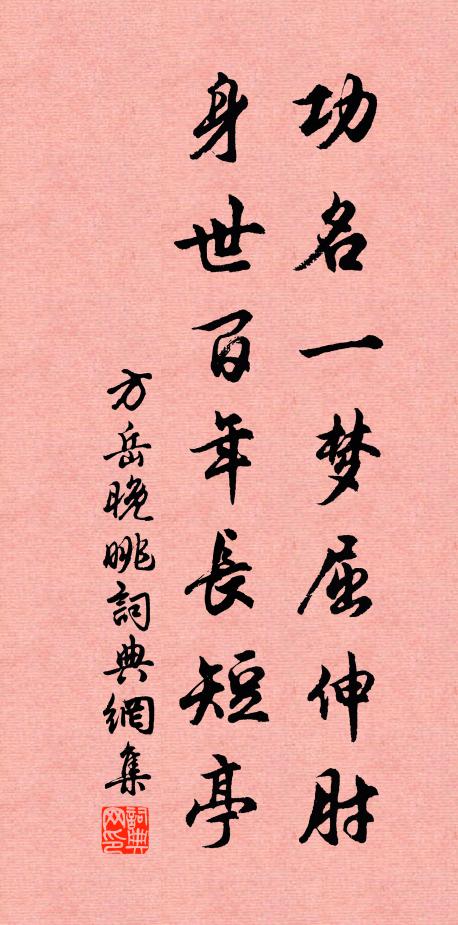 功名一梦屈伸肘
身世百年長短亭
方岳晚眺詞典網集
詞典网印